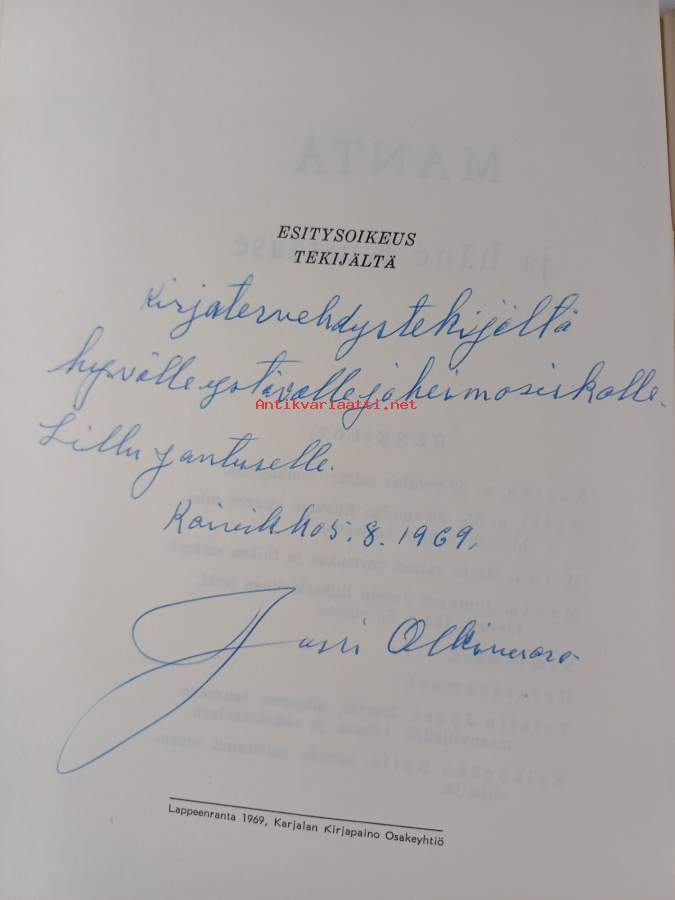 ESITYSOIKEUS
TEKIJÄLTÄ
Kirjatervehdys tekijältä
hyvälle ystävälle ja heimosiskolle
Antikvariaatti.net
Lillu Jantuselle.
Koivikko 5.8.1969.
Jussi Olkinuora
Lappeenranta 1969, Karjalan Kirjapaino Osakeyhtiö